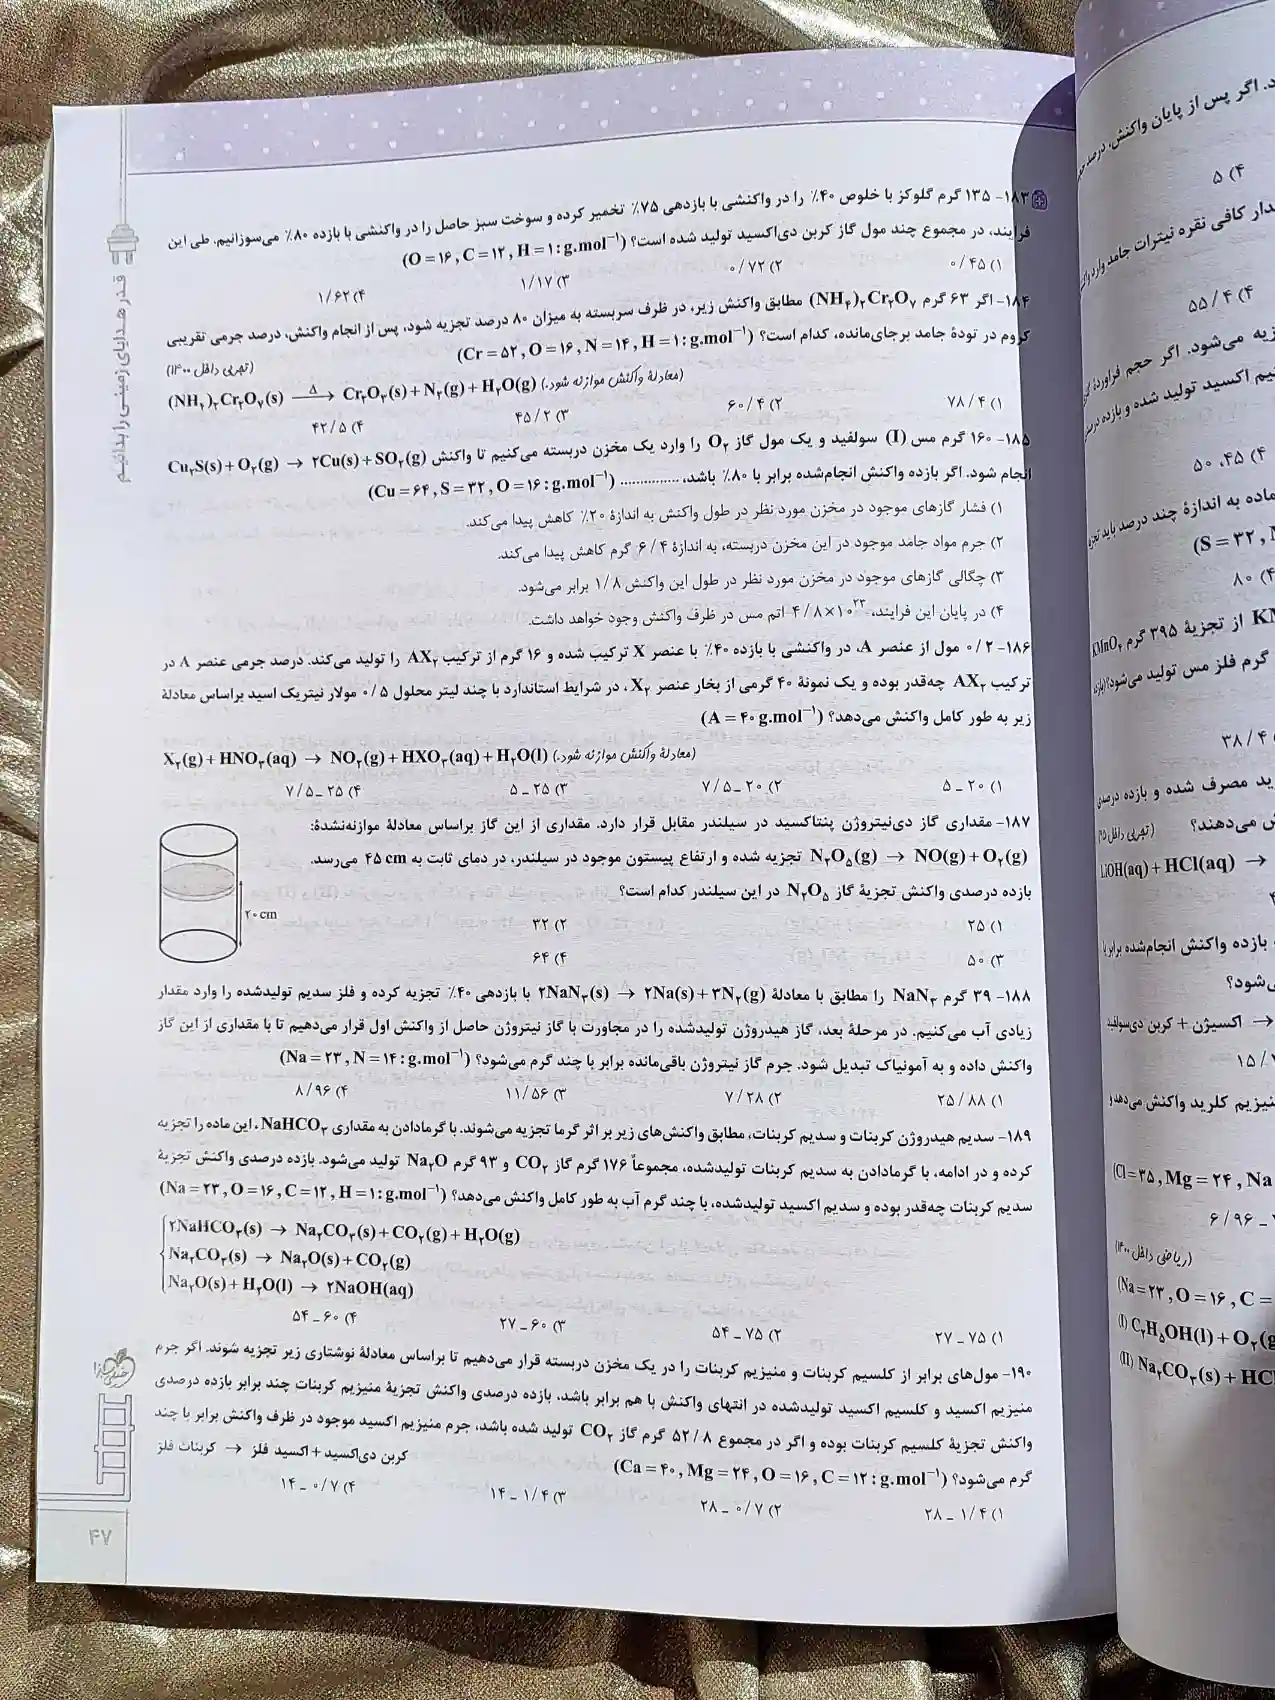 ۱۸۳- ۱۳۵ گرم گلوکز با خلوص ۴۰٪ را در واکنشی با بازدهی ۷۵٪ تخمیر کرده و سوخت سبز حاصل را در واکنشی با بازده ۸۰٪ می‌سوزانیم. طی این
فرایند، در مجموع چند مول گاز کربن دی‌اکسید تولید شده است؟ (O = ۱۶ , C = ۱۲ , H = ۱ : g.mol⁻¹)
۱) ۰/۴۵ ۲) ۰/۷۲ ۳) ۱/۱۷ ۴) ۱/۶۲
۱۸۴- اگر ۶۳ گرم (NH₄)₂Cr₂O₇ مطابق واکنش زیر، در ظرف سربسته به میزان ۸۰ درصد تجزیه شود، پس از انجام واکنش، درصد جرمی تقریبی
کروم در تودهٔ جامد برجای‌مانده، کدام است؟ (Cr = ۵۲ , O = ۱۶ , N = ۱۴ , H = ۱ : g.mol⁻¹)
(تجربی داخل ۱۴۰۰)
(NH₄)₂Cr₂O₇(s) —Δ→ Cr₂O₃(s) + N₂(g) + H₂O(g) (معادلهٔ واکنش موازنه شود.)
۱) ۷۸/۴ ۲) ۶۰/۴ ۳) ۴۵/۲ ۴) ۴۲/۵
۱۸۵- ۱۶۰ گرم مس (I) سولفید و یک مول گاز O₂ را وارد یک مخزن دربسته می‌کنیم تا واکنش Cu₂S(s) + O₂(g) → ۲Cu(s) + SO₂(g)
انجام شود. اگر بازده واکنش انجام‌شده برابر با ۸۰٪ باشد، ............... (Cu = ۶۴ , S = ۳۲ , O = ۱۶ : g.mol⁻¹)
۱) فشار گازهای موجود در مخزن مورد نظر در طول واکنش به اندازهٔ ۲۰٪ کاهش پیدا می‌کند.
۲) جرم مواد جامد موجود در این مخزن دربسته، به اندازهٔ ۶/۴ گرم کاهش پیدا می‌کند.
۳) چگالی گازهای موجود در مخزن مورد نظر در طول این واکنش ۱/۸ برابر می‌شود.
۴) در پایان این فرایند، ۴/۸×۱۰²³ اتم مس در ظرف واکنش وجود خواهد داشت.
۱۸۶- ۰/۲ مول از عنصر A، در واکنشی با بازده ۴۰٪ با عنصر X ترکیب شده و ۱۶ گرم از ترکیب AX₂ را تولید می‌کند. درصد جرمی عنصر A در
ترکیب AX₂ چه‌قدر بوده و یک نمونهٔ ۴۰ گرمی از بخار عنصر X₂، در شرایط استاندارد با چند لیتر محلول ۰/۵ مولار نیتریک اسید براساس معادلهٔ
زیر به طور کامل واکنش می‌دهد؟ (A = ۴۰ g.mol⁻¹)
X₂(g) + HNO₃(aq) → NO₂(g) + HXO₃(aq) + H₂O(l) (معادلهٔ واکنش موازنه شود.)
۱) ۲۰ ـ ۵ ۲) ۲۰ ـ ۷/۵ ۳) ۲۵ ـ ۵ ۴) ۲۵ ـ ۷/۵
۱۸۷- مقداری گاز دی‌نیتروژن پنتاکسید در سیلندر مقابل قرار دارد. مقداری از این گاز براساس معادلهٔ موازنه‌نشدهٔ:
N₂O₅(g) → NO(g) + O₂(g) تجزیه شده و ارتفاع پیستون موجود در سیلندر، در دمای ثابت به ۴۵ cm می‌رسد.
بازده درصدی واکنش تجزیهٔ گاز N₂O₅ در این سیلندر کدام است؟
۲۰ cm
۱) ۲۵ ۲) ۳۲
۳) ۵۰ ۴) ۶۴
۱۸۸- ۳۹ گرم NaN₃ را مطابق با معادلهٔ ۲NaN₃(s) → ۲Na(s) + ۳N₂(g) با بازدهی ۴۰٪ تجزیه کرده و فلز سدیم تولیدشده را وارد مقدار
زیادی آب می‌کنیم. در مرحلهٔ بعد، گاز هیدروژن تولیدشده را در مجاورت با گاز نیتروژن حاصل از واکنش اول قرار می‌دهیم تا با مقداری از این گاز
واکنش داده و به آمونیاک تبدیل شود. جرم گاز نیتروژن باقی‌مانده برابر با چند گرم می‌شود؟ (Na = ۲۳ , N = ۱۴ : g.mol⁻¹)
۱) ۲۵/۸۸ ۲) ۷/۲۸ ۳) ۱۱/۵۶ ۴) ۸/۹۶
۱۸۹- سدیم هیدروژن کربنات و سدیم کربنات، مطابق واکنش‌های زیر بر اثر گرما تجزیه می‌شوند. با گرمادادن به مقداری NaHCO₃، این ماده را تجزیه
کرده و در ادامه، با گرمادادن به سدیم کربنات تولیدشده، مجموعاً ۱۷۶ گرم گاز CO₂ و ۹۳ گرم Na₂O تولید می‌شود. بازده درصدی واکنش تجزیهٔ
سدیم کربنات چه‌قدر بوده و سدیم اکسید تولیدشده، با چند گرم آب به طور کامل واکنش می‌دهد؟ (Na = ۲۳ , O = ۱۶ , C = ۱۲ , H = ۱ : g.mol⁻¹)
۲NaHCO₃(s) → Na₂CO₃(s) + CO₂(g) + H₂O(g)
Na₂CO₃(s) → Na₂O(s) + CO₂(g)
Na₂O(s) + H₂O(l) → ۲NaOH(aq)
۱) ۷۵ ـ ۲۷ ۲) ۷۵ ـ ۵۴ ۳) ۶۰ ـ ۲۷ ۴) ۶۰ ـ ۵۴
۱۹۰- مول‌های برابر از کلسیم کربنات و منیزیم کربنات را در یک مخزن دربسته قرار می‌دهیم تا براساس معادلهٔ نوشتاری زیر تجزیه شوند. اگر جرم
منیزیم اکسید و کلسیم اکسید تولیدشده در انتهای واکنش با هم برابر باشد، بازده درصدی واکنش تجزیهٔ منیزیم کربنات چند برابر بازده درصدی
واکنش تجزیهٔ کلسیم کربنات بوده و اگر در مجموع ۵۲/۸ گرم گاز CO₂ تولید شده باشد، جرم منیزیم اکسید موجود در ظرف واکنش برابر با چند
گرم می‌شود؟ (Ca = ۴۰ , Mg = ۲۴ , O = ۱۶ , C = ۱۲ : g.mol⁻¹) کربن دی‌اکسید + اکسید فلز → کربنات فلز
۱) ۱/۴ ـ ۲۸ ۲) ۰/۷ ـ ۲۸ ۳) ۱/۴ ـ ۱۴ ۴) ۰/۷ ـ ۱۴
قدر هدایای زمینی را بدانیم
۴۷
د. اگر پس از پایان واکنش، درصد
۴) ۵
دار کافی نقره نیترات جامد وارد
۴) ۵۵/۴
زیه می‌شود. اگر حجم فراوردهٔ
یم اکسید تولید شده و بازده
۴) ۴۵، ۵۰
ماده به اندازهٔ چند درصد باید
(S = ۳۲ ,
۴) ۸۰
از تجزیهٔ ۳۹۵ گرم KMnO₄
گرم فلز مس تولید می‌شود؟
۳۸/۴
ید مصرف شده و بازده درصدی
ش می‌دهند؟
LiOH(aq) + HCl(aq) →
بازده واکنش انجام‌شده برابر با
ی‌شود؟
→ اکسیژن + کربن دی‌سولفید
نیزیم کلرید واکنش می‌دهد و
(Cl = ۳۵ , Mg = ۲۴ , Na
۶/۹۶ ـ
(ریاضی داخل ۱۴۰۰)
(Na = ۲۳ , O = ۱۶ , C =
(I) C₂H₅OH(l) + O₂(g
(II) Na₂CO₃(s) + HC